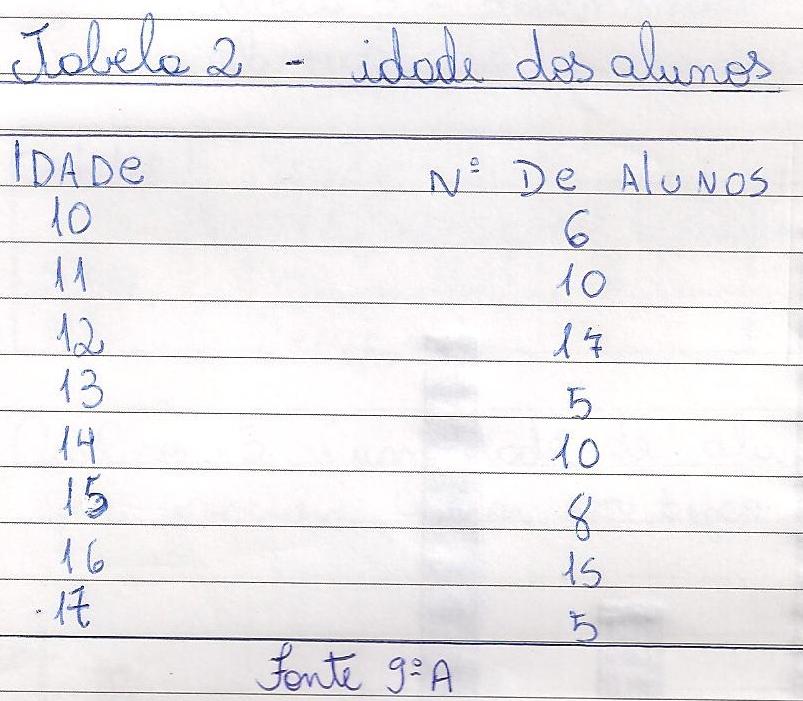 Tabela 2 - idade dos alunos
IDADE Nº DE AlUNOS
10 6
11 10
12 17
13 5
14 10
15 8
16 15
17 5
Fonte 9ºA